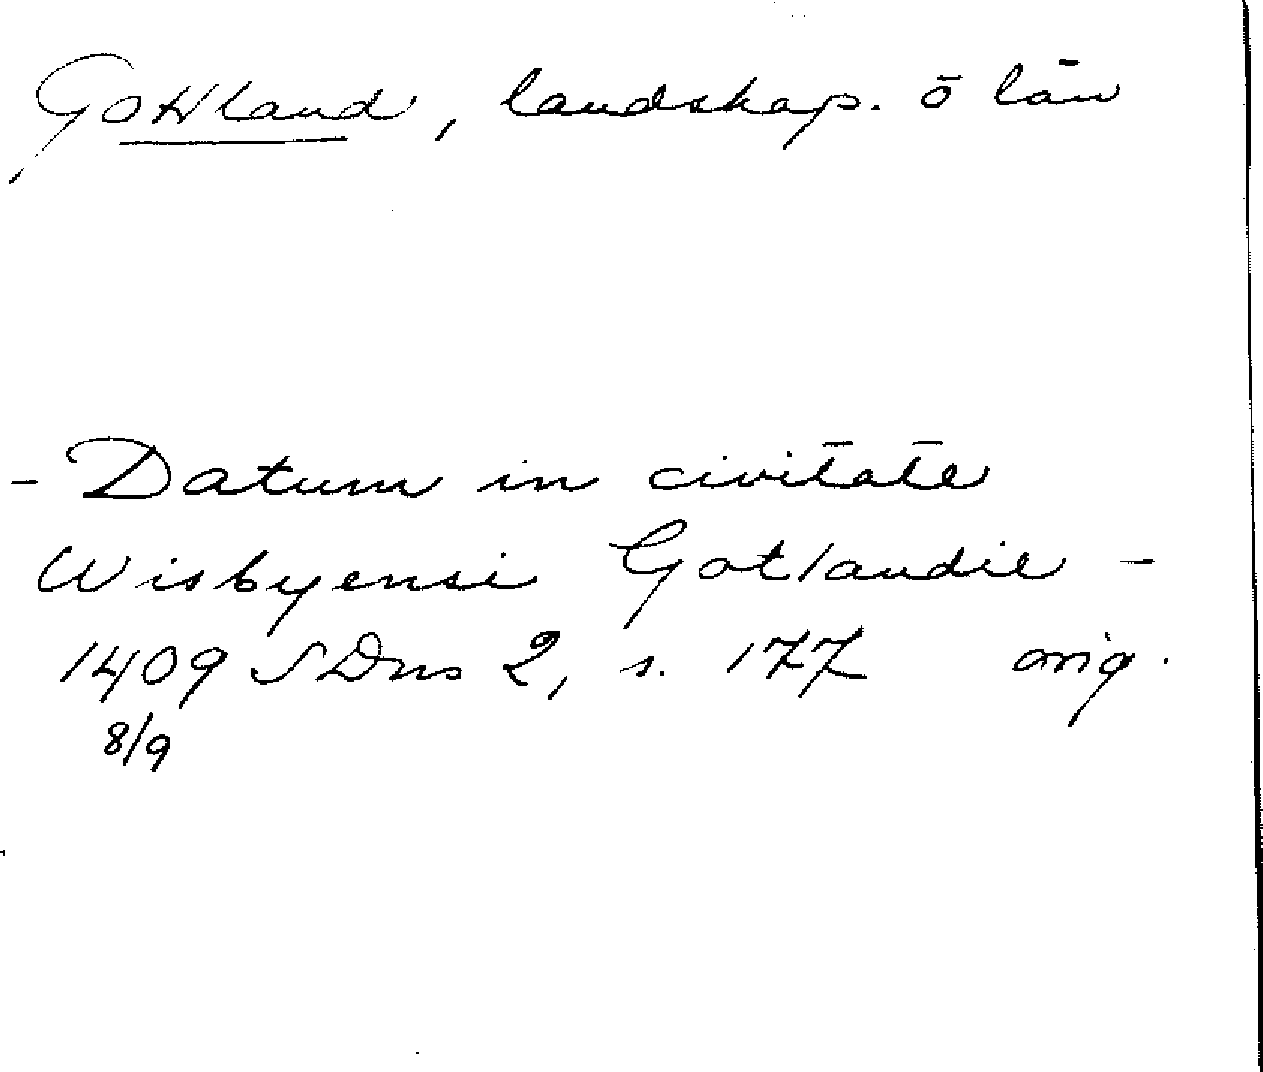 Gottland, landskap. ō lān
- Datum in civitate
Wisbyensi Gotlandie -
1409 SDns 2, s. 177 orig.
8/9